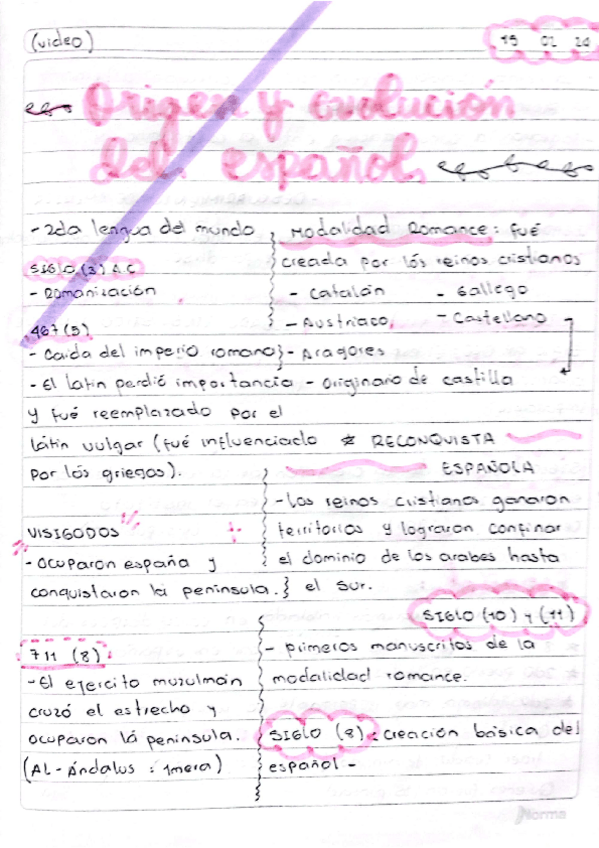 (video)
19 02 20
Origen y evolución
del español
- 2da lengua del mundo
SIGLO (3) A.C
- Romanización
467 (5)
- Caida del imperio romano
- El latin perdió importancia
y fué reemplazado por el
látin vulgar (fué influenciado
por lós griegos).
VISIGODOS
- Ocuparon españa y
conquistaron la peninsula.
711 (8)
- El ejercito muzulmán
cruzó el estrecho y
ocuparon lá peninsula.
(AL - Ándalus : 1mera)
Modalidad Romance: fué
creada por lós reinos cristianos
- Catalán - Gallego
- Austriaco - Castellano
- Aragores
- Originario de castilla
* RECONQUISTA
ESPAÑOLA
- Los reinos cristianos ganaron
territorios y lograron confinar
el dominio de los arabes hasta
el sur.
SIGLO (10) y (11)
- primeros manuscritos de la
modalidad romance.
SIGLO (8) : creación básica del
español -
Norma